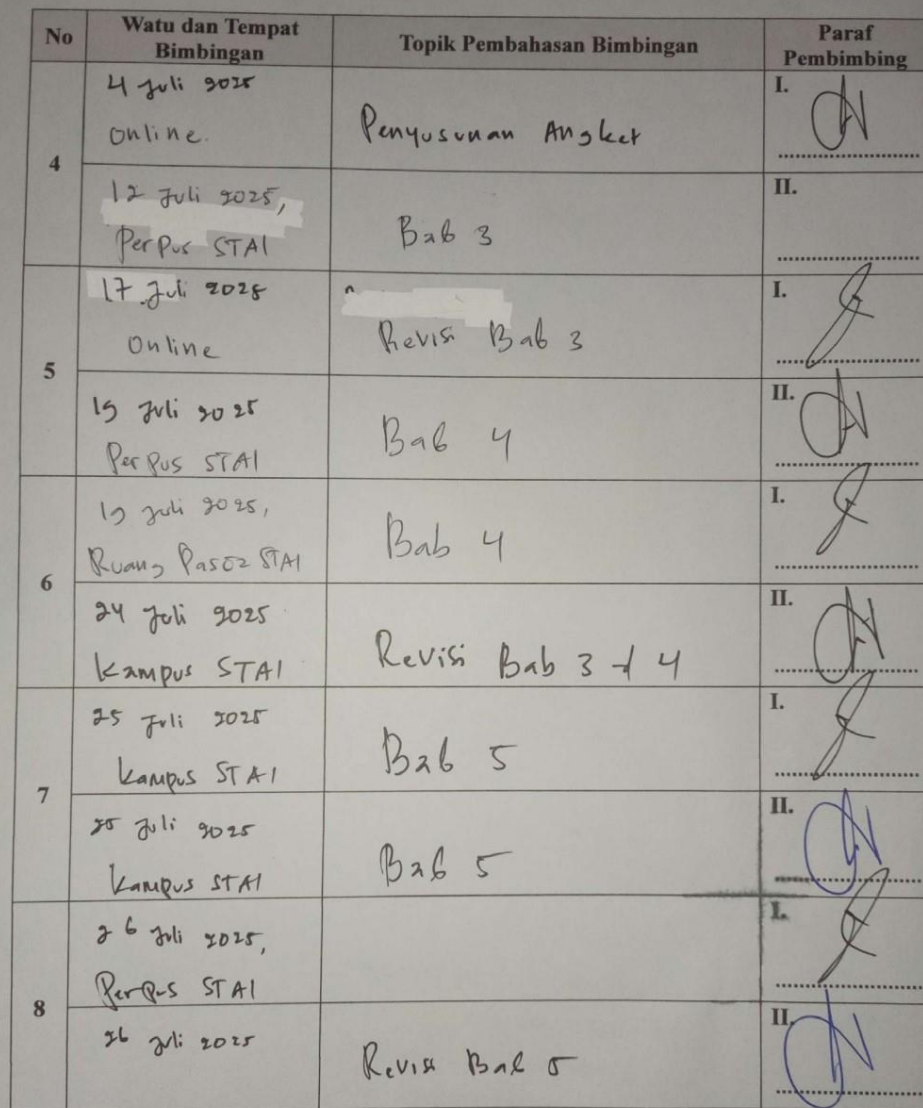 No
Watu dan Tempat
Bimbingan
Topik Pembahasan Bimbingan
Paraf
Pembimbing
4
4 Juli 2025
Online.
Penyusunan Angket
I.
12 Juli 2025,
Perpus STAI
Bab 3
II.
5
17 Juli 2025
Online
Revisi Bab 3
I.
19 Juli 2025
Perpus STAI
Bab 4
II.
6
19 Juli 2025,
Ruang STAI
Bab 4
I.
24 Juli 2025
Kampus STAI
Revisi Bab 3 4
II.
7
25 Juli 2025
Kampus STAI
Bab 5
I.
25 Juli 2025
Kampus STAI
Bab 5
II.
8
26 Juli 2025,
Perpus STAI
I.
26 Juli 2025
Revisi Bab 5
II.